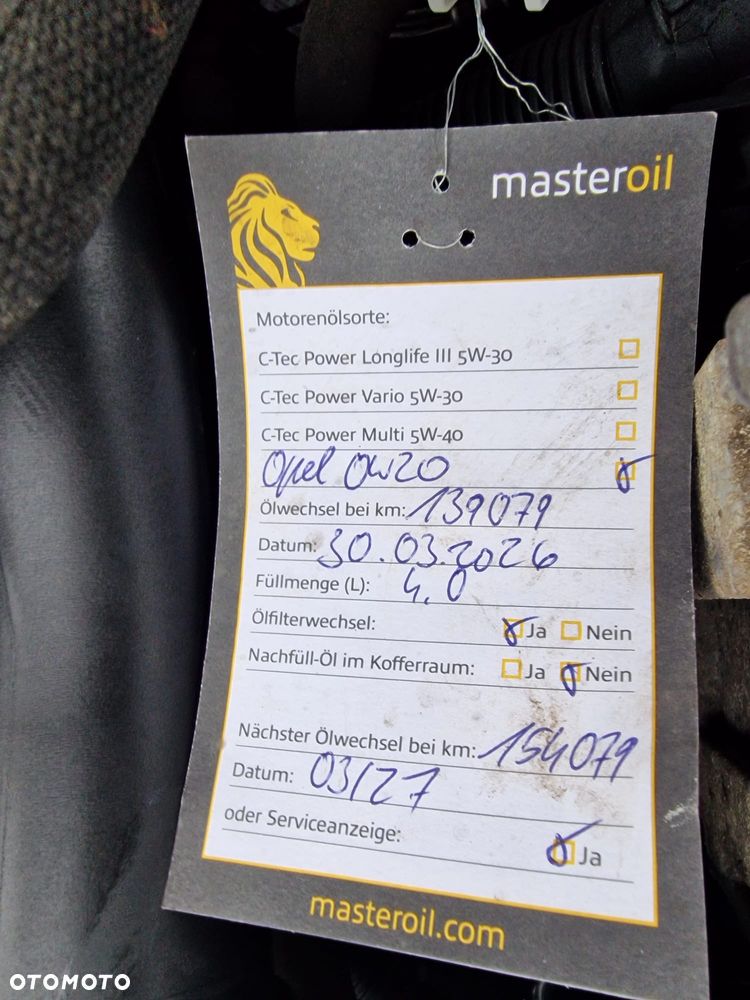 masteroil
Motorenölsorte:
C-Tec Power Longlife III 5W-30
C-Tec Power Vario 5W-30
C-Tec Power Multi 5W-40
Opel 0W20
Ölwechsel bei km: 139079
Datum: 30.03.2026
Füllmenge (L): 4,0
Ölfilterwechsel: Ja Nein
Nachfüll-Öl im Kofferraum: Ja Nein
Nächster Ölwechsel bei km: 154079
Datum: 03/27
oder Serviceanzeige: Ja
masteroil.com
OTOMOTO